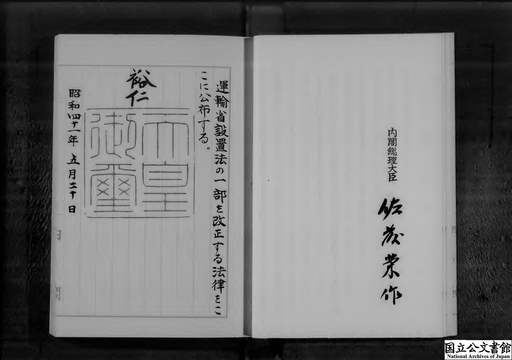 内閣総理大臣
佐藤榮作
運輸省設置法の一部を改正する法律をこ
こに公布する。
裕仁
天皇
御璽
昭和四十一年五月二十日
国立公文書館
National Archives of Japan